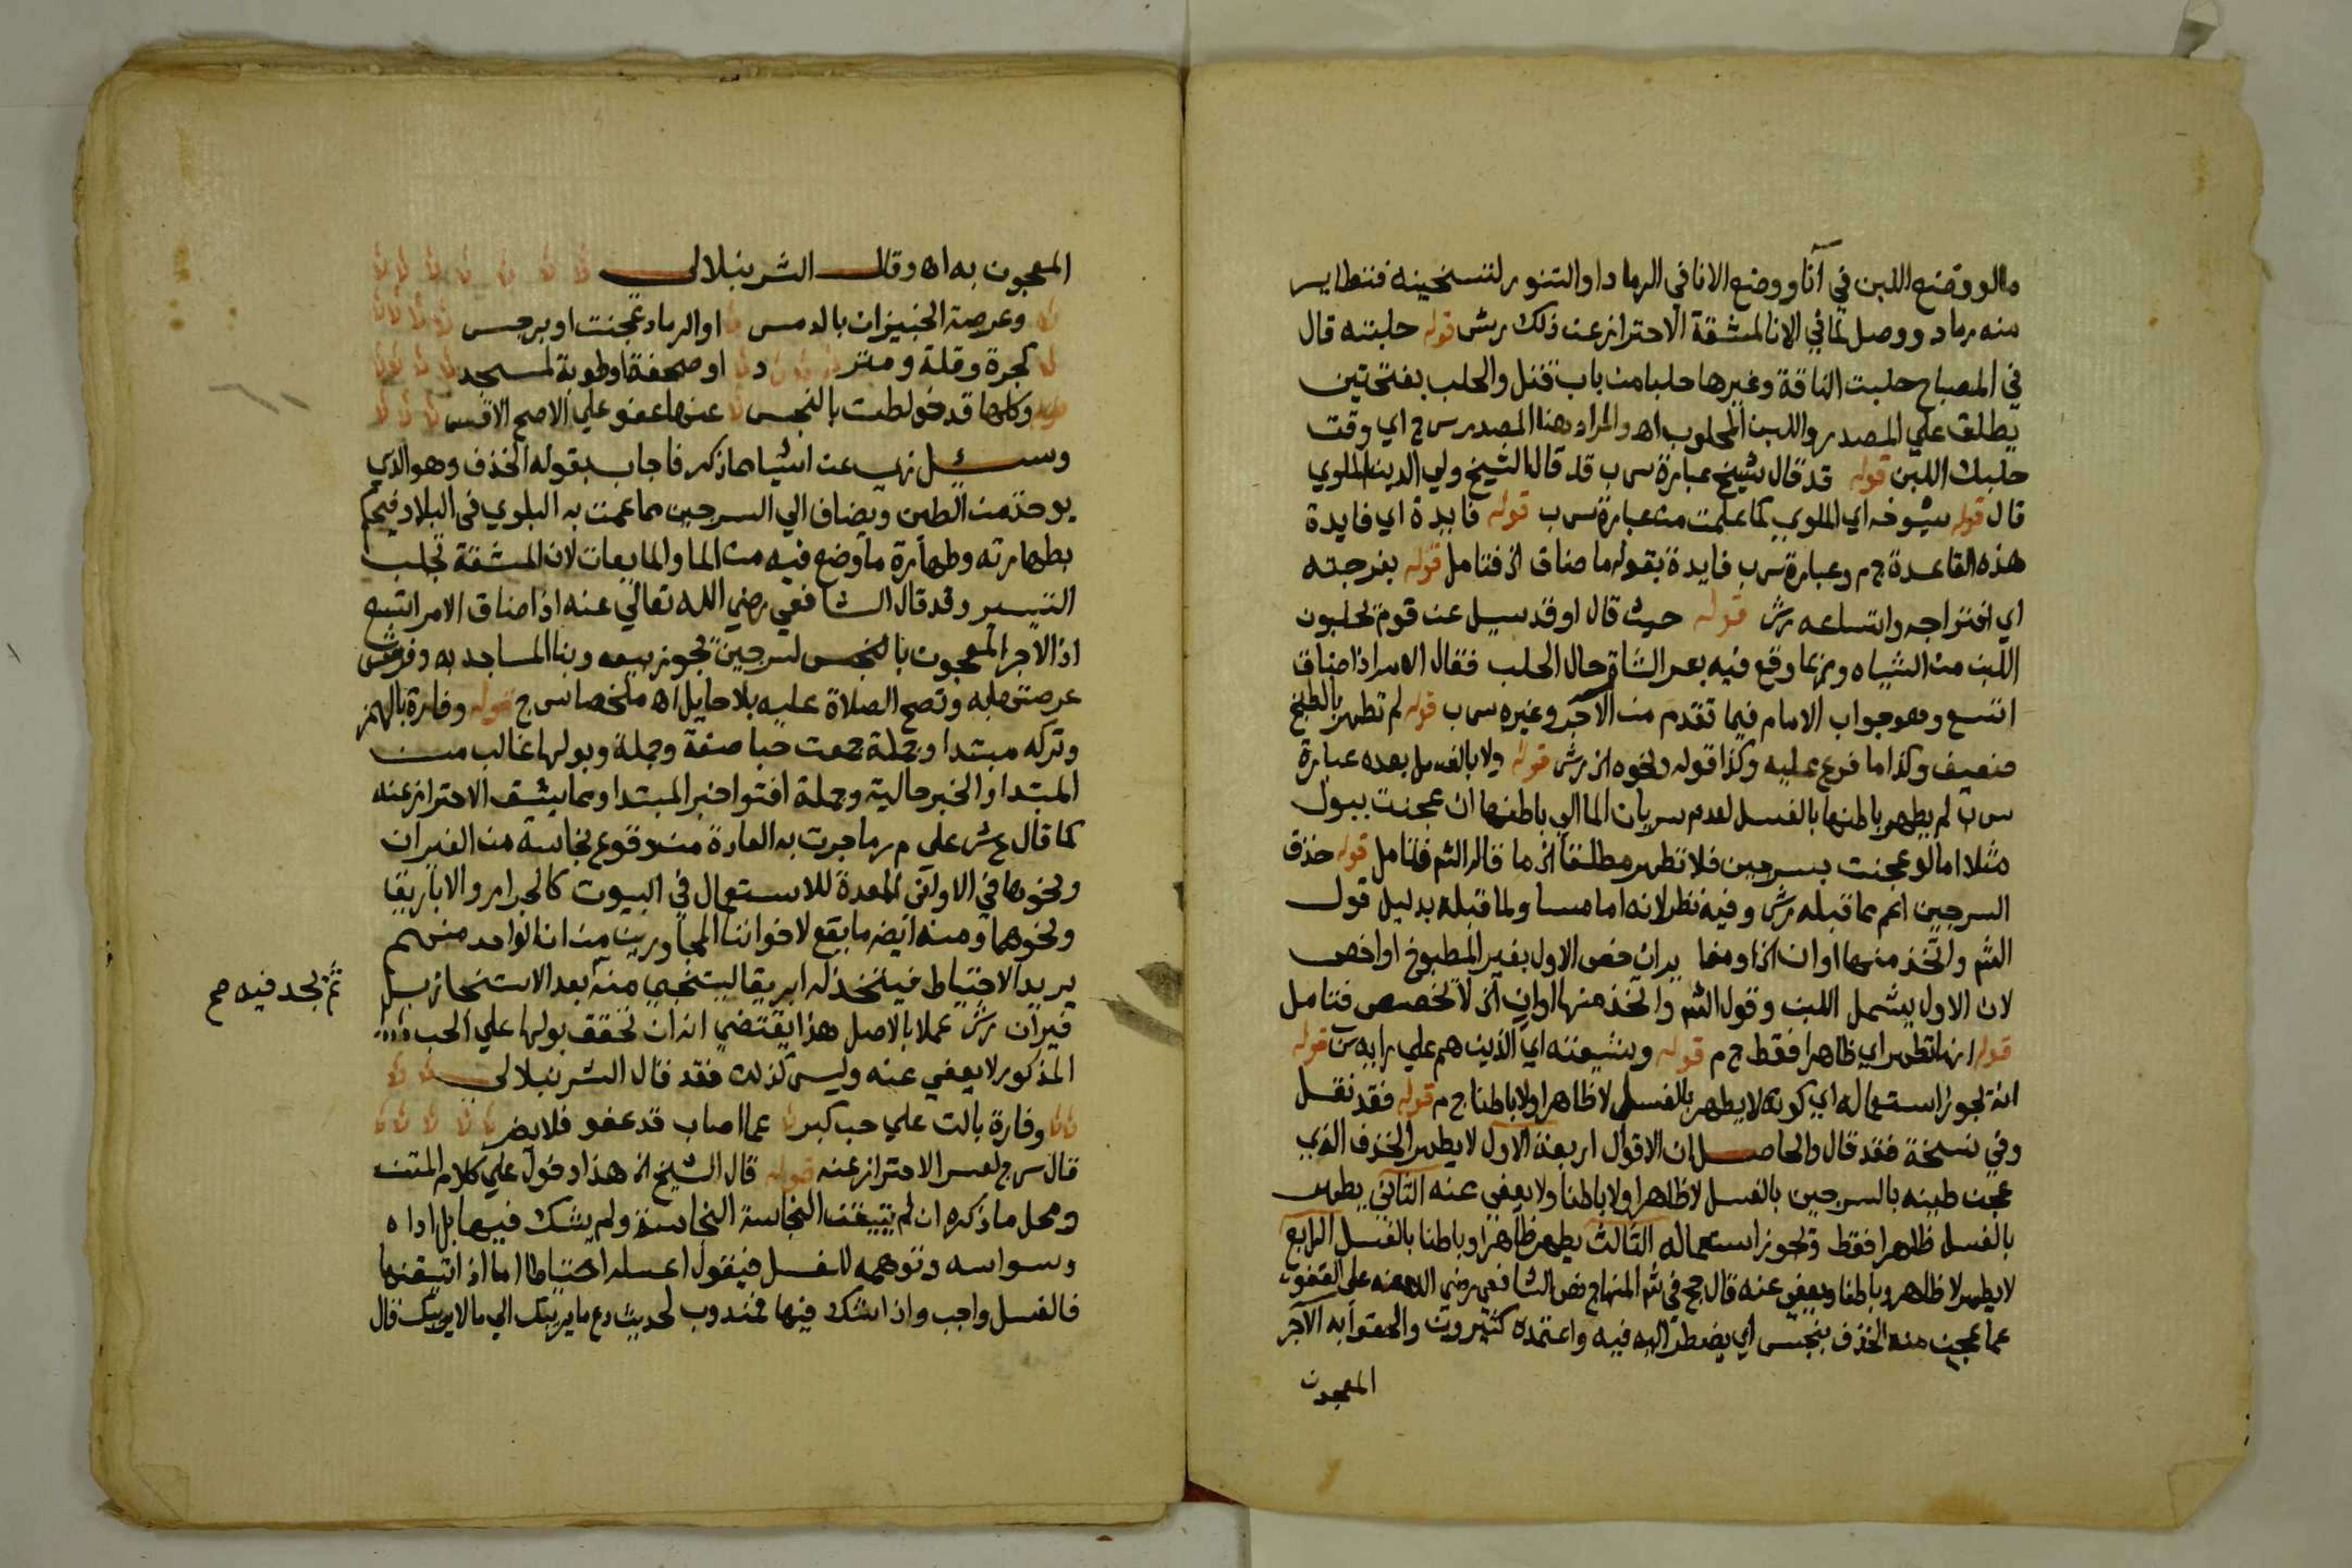 مالو وضع اللبن في آنا ووضع الانا في الرماد او التنور لتسخينه فتطاير
منه رماد ووصل لما في الانا لمشقة الاحتراز عن ذلك رش قوله حلبته قال
في المصباح حلبت الناقة وغيرها حلبا من باب قتل والحلب بفتحتين
يطلق علي المصدر واللبن المحلوب اه والمراد هنا المصدر س ج اي وقت
حلبك اللبن قوله قد قال شيخ عبارة س ب قد قال الشيخ ولي الدين الملوي
قال قوله شيوخه اي الملوي كما علمت من عبارة س ب قوله فايدة اي فايدة
هذه القاعدة ج م وعبارة س ب فايدة بقوله ما ضاق الخ فتامل قوله بفرجته
اي انفراجه واتساعه رش قوله حيث قال او قد سيل عن قوم يحلبون
اللبن من الشياه وربما وقع فيه بعر الشاة حال الحلب فقال الامر اذا ضاق
اتسع وهو جواب الامام فيما تقدم من الآجر وغيره س ب قوله لم تطهر بالطبخ
ضعيف وكذا ما فرع عليه وكذا قوله ونحوه الخ رش قوله ولا بالغسل بعده عبارة
س ب لم يطهر باطنها بالغسل لعدم سريان الما الي باطنها ان عجنت ببول
مثلا اما لو عجنت بسرجين فلا تطهر مطلقا الخ ما قاله الشم فتامل قوله خذف
السرجين اعم مما قبله رش وفيه نظر لانه اما مساو لما قبله بدليل قول
الشم واتخذ منها اوان الخ او مفا يدان خص الاول بغير المطبوخ او اخص
لان الاول يشمل اللبن وقول الشم واتخذ منها اوان الخ لا تخصيص فتامل
قوله انها تطهر اي ظاهرا فقط ج م قوله وشيعته اي الذين هم علي رايه س قوله
انه يجوز استعماله اي كونه لا يطهر بالغسل لا ظاهرا ولا باطنا ج م قوله فقد نقل
وفي نسخة فقد قال والحاصل ان الاقوال اربعة الاول لا يطهر الخذف الذي
عجن طينه بالسرجين بالغسل لا ظاهرا ولا باطنا ولا يعفي عنه الثاني يطهر
بالغسل ظاهرا فقط ويجوز استعماله الثالث يطهر ظاهرا وباطنا بالغسل الرابع
لا يطهر لا ظاهر وباطنا ويعفي عنه قال حج في شم المنهاج نص الشافعي رضي الله عنه علي العفو
عما عجن منه الخذف بنجس اي يضطر اليه فيه واعتمده كثيرون والحقوا به الآجر
المعجون
المعجون به اه وقال الشرنبلالي
وعرصة الخبيزان بالدمس او الرماد عجنت او برجس
كجرة وقلة ومتر د او صحفة او طوبة لمسجد
وكلها قد خولطت بالنجس عنها عفو علي الاصح الاقيس
وسئل زي عن اشيا ما ذكر فاجاب بقوله الخذف وهو الذي
يوخذ من الطين ويضاف الي السرجين مما عمت به البلوي في البلاد فيحكم
بطهارته وطهارة ما وضع فيه من الما والمايعات لان المشقة تجلب
التيسير وقد قال الشافعي رضي الله تعالي عنه اذا ضاق الامر اتسع
اذ الآجر المعجون بالنجس لسرجين يجوز بيعه وبنا المساجد به وفرش
عرصتها به وتصح الصلاة عليه بلا حايل اه ملخصا س ج قوله وفارة بالهمز
وتركه مبتدا وجملة جمعت حبا صفة وجملة وبولها غالب من
المبتدا والخبر حالية وجملة افتوا خبر المبتدا ومما يشق الاحتراز عنه
كما قال ع ش علي م ر ما جرت به العادة من وقوع نجاسة من الفيران
ونحوها في الاواني المعدة للاستعمال في البيوت كالجرار والاباريقا
ونحوهما ومنه ايضا ما يقع لاخواننا المجاورين من ان الواحد منهم
يريد الاحتياط فيتخذ له ابريقا ليستنجي منه بعد الاستنجا زبل
ثم يجد فيه صح
فيران رش عملا بالاصل هذا يقتضي انه ان تحقق بولها علي الحب
المذكور لا يعفي عنه وليس كذلك فقد قال الشرنبلالي
وفارة بالت علي حب كبر عما اصاب قد عفو فلا يضر
قال س ج لعسر الاحتراز عنه قوله قال الشيخ الخ هذا دخول علي كلام المتن
ومحل ما ذكره ان لم يتيقن النجاسة النجاسة ولم يشك فيها بل اداه
وسواسه وتوهمه للغسل فيقول اغسله احتياطا اما اذا تيقنها
فالغسل واجب واذا شك فيها فمندوب لحديث دع ما يريبك الي ما لا يريبك قال